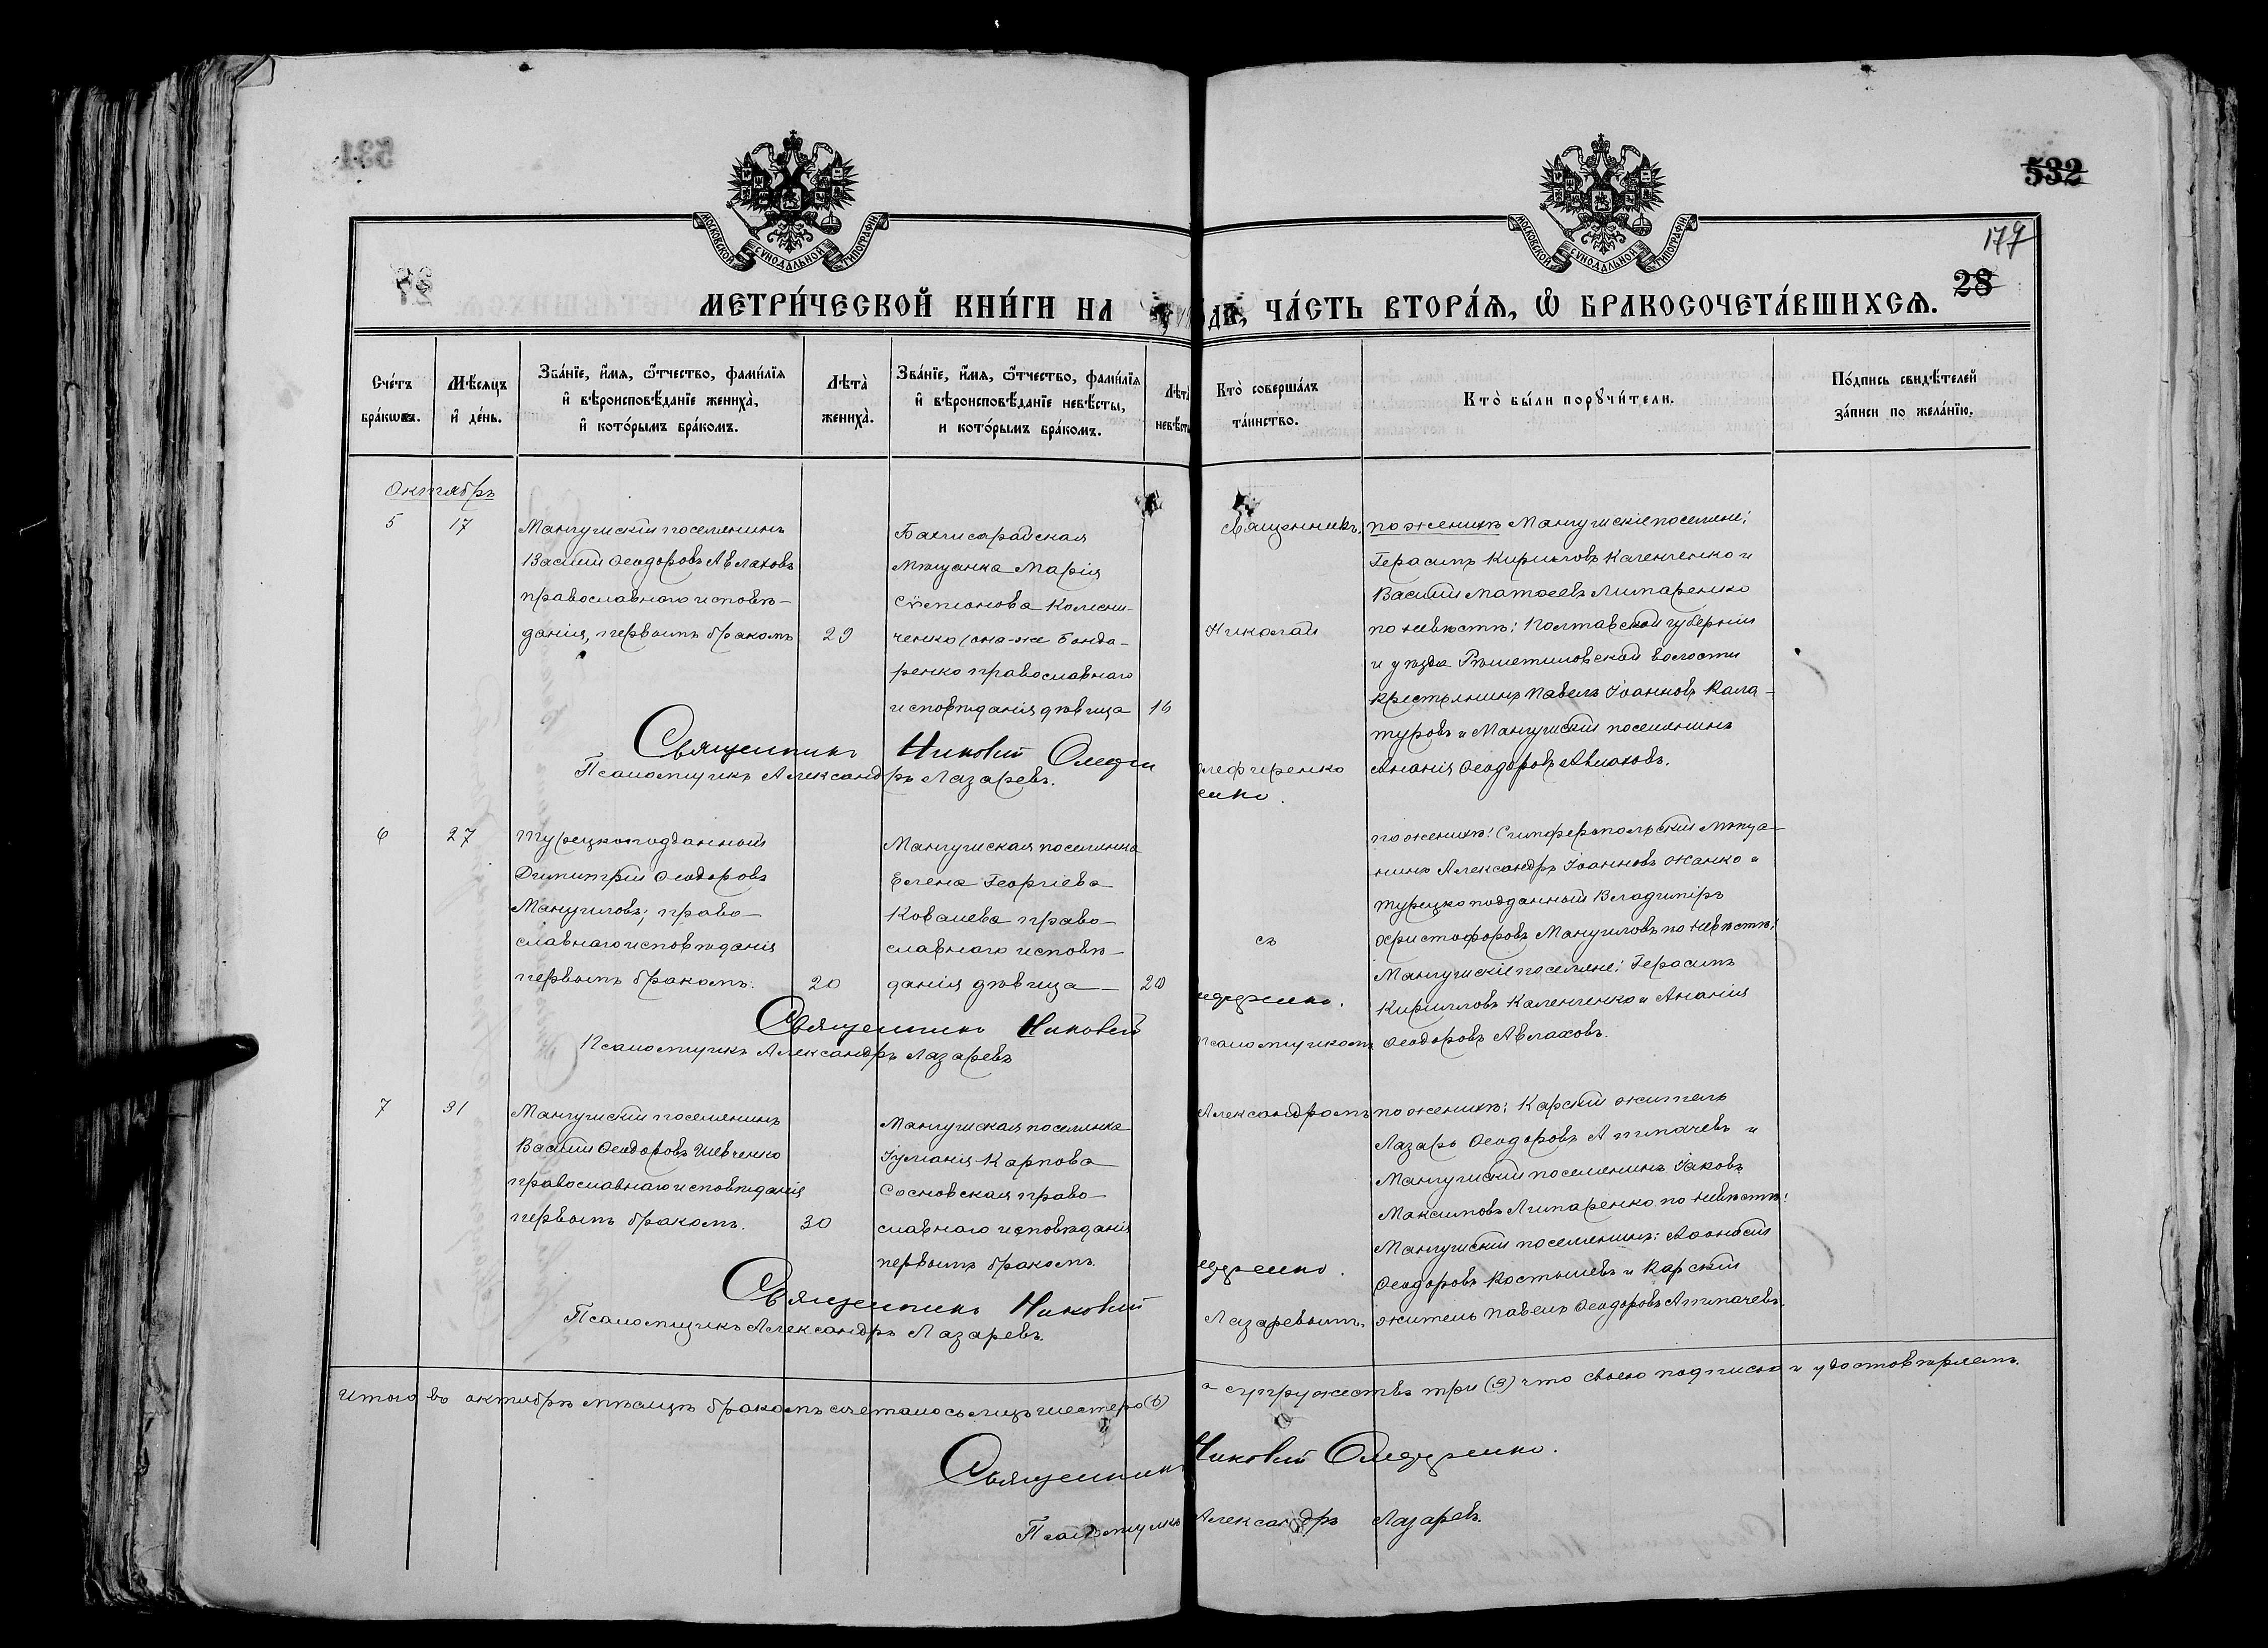 532
179
28
МОСКОВСКОЙ СѴНОДАЛЬНОЙ ТИПОГРАФІИ
МОСКОВСКОЙ СѴНОДАЛЬНОЙ ТИПОГРАФІИ
МЕТРИ́ЧЕСКОЙ КНИ́ГИ НА
ЧА́СТЬ ВТОРА́Ѧ, Ѽ БРАКОСОЧЕТА́ВШИХСѦ.
Сче́тъ
бра́кѡвъ.
Мѣ́сяцъ
и҆ де́нь.
Зва́нїе, и҆́мя, ѻ҆́тчество, фами́лїя
и҆ вѣроисповѣ́данїе жениха̀,
и҆ кото́рымъ бра́комъ.
Лѣта̀
жениха̀.
Зва́нїе, и҆́мя, ѻ҆́тчество, фами́лїя
и҆ вѣроисповѣ́данїе невѣ́сты,
и кото́рымъ бра́комъ.
Лѣта̀
невѣсты
Кто̀ соверша́лъ
та́инство.
Кто̀ бы́ли порꙋчи́тели.
По́дпись свидѣ́телей
за́писи по жела́нїю.
Октябрь
5
17
Мангушскій поселянинъ
Василій Ѳеодоровъ Авлаховъ
православнаго исповѣ-
данія, первымъ бракомъ
29
Бахчисарайская
Мѣщанка Марія
Сѵмеонова Колесни-
ченко (она-же Бонда-
ренко православнаго
исповѣданія дѣвица
16
Священникъ
Николай
Олефиренко
по женихѣ Мангушскіе поселяне:
Герасимъ Кирилловъ Каленченко и
Василій Матѳеевъ Литаренко
по невѣстѣ: Полтавской губерніи
и уѣзда Рѣшетиловской волости
крестьянинъ Павелъ Іоанновъ Кала-
туровъ и Мангушскій поселянинъ
Ананія Ѳеодоровъ Авлаховъ.
Священникъ Николай
Псаломщикъ Александръ Лазаревъ.
6
27
Турецкоподданный
Димитрій Ѳеодоровъ
Мануиловъ; право-
славнаго исповѣданія
первымъ бракомъ.
20
Мангушская поселянка
Елена Георгіева
Ковалева право-
славнаго исповѣ-
данія дѣвица
20
съ
псаломщикомъ
по женихѣ: Симферопольскій мѣща-
нинъ Александръ Іоанновъ Жанко и
турецкоподданный Владиміръ
Христофоровъ Мануиловъ по невѣстѣ:
Мангушскіе поселяне: Герасимъ
Кирилловъ Каленченко и Ананія
Ѳеодоровъ Авлаховъ.
Священникъ Николай
Псаломщикъ Александръ Лазаревъ
7
31
Мангушскій поселянинъ
Василій Ѳеодоровъ Шевченко
православнаго исповѣданія
первымъ бракомъ.
30
Мангушская поселянка
Іуліанія Карпова
Сосновская право-
славнаго исповѣданія
первымъ бракомъ.
Александромъ
Лазаревымъ.
по женихѣ: Карскій житель
Лазарь Ѳеодоровъ Атмачевъ и
Мангушскій поселянинъ Іаковъ
Максимовъ Литаренко по невѣстѣ:
Мангушскій поселянинъ: Аѳанасій
Ѳеодоровъ Костышевъ и Карскій
житель Павелъ Ѳеодоровъ Атмачевъ.
Священникъ Николай
Псаломщикъ Александръ Лазаревъ.
Итого въ октябрѣ мѣсяцѣ бракомъ сочеталось лицъ шестеро (6) а супружествъ три (3) что своею подписью и удостовѣряемъ.
Священникъ Николай Олефиренко.
Псаломщикъ Александръ Лазаревъ.